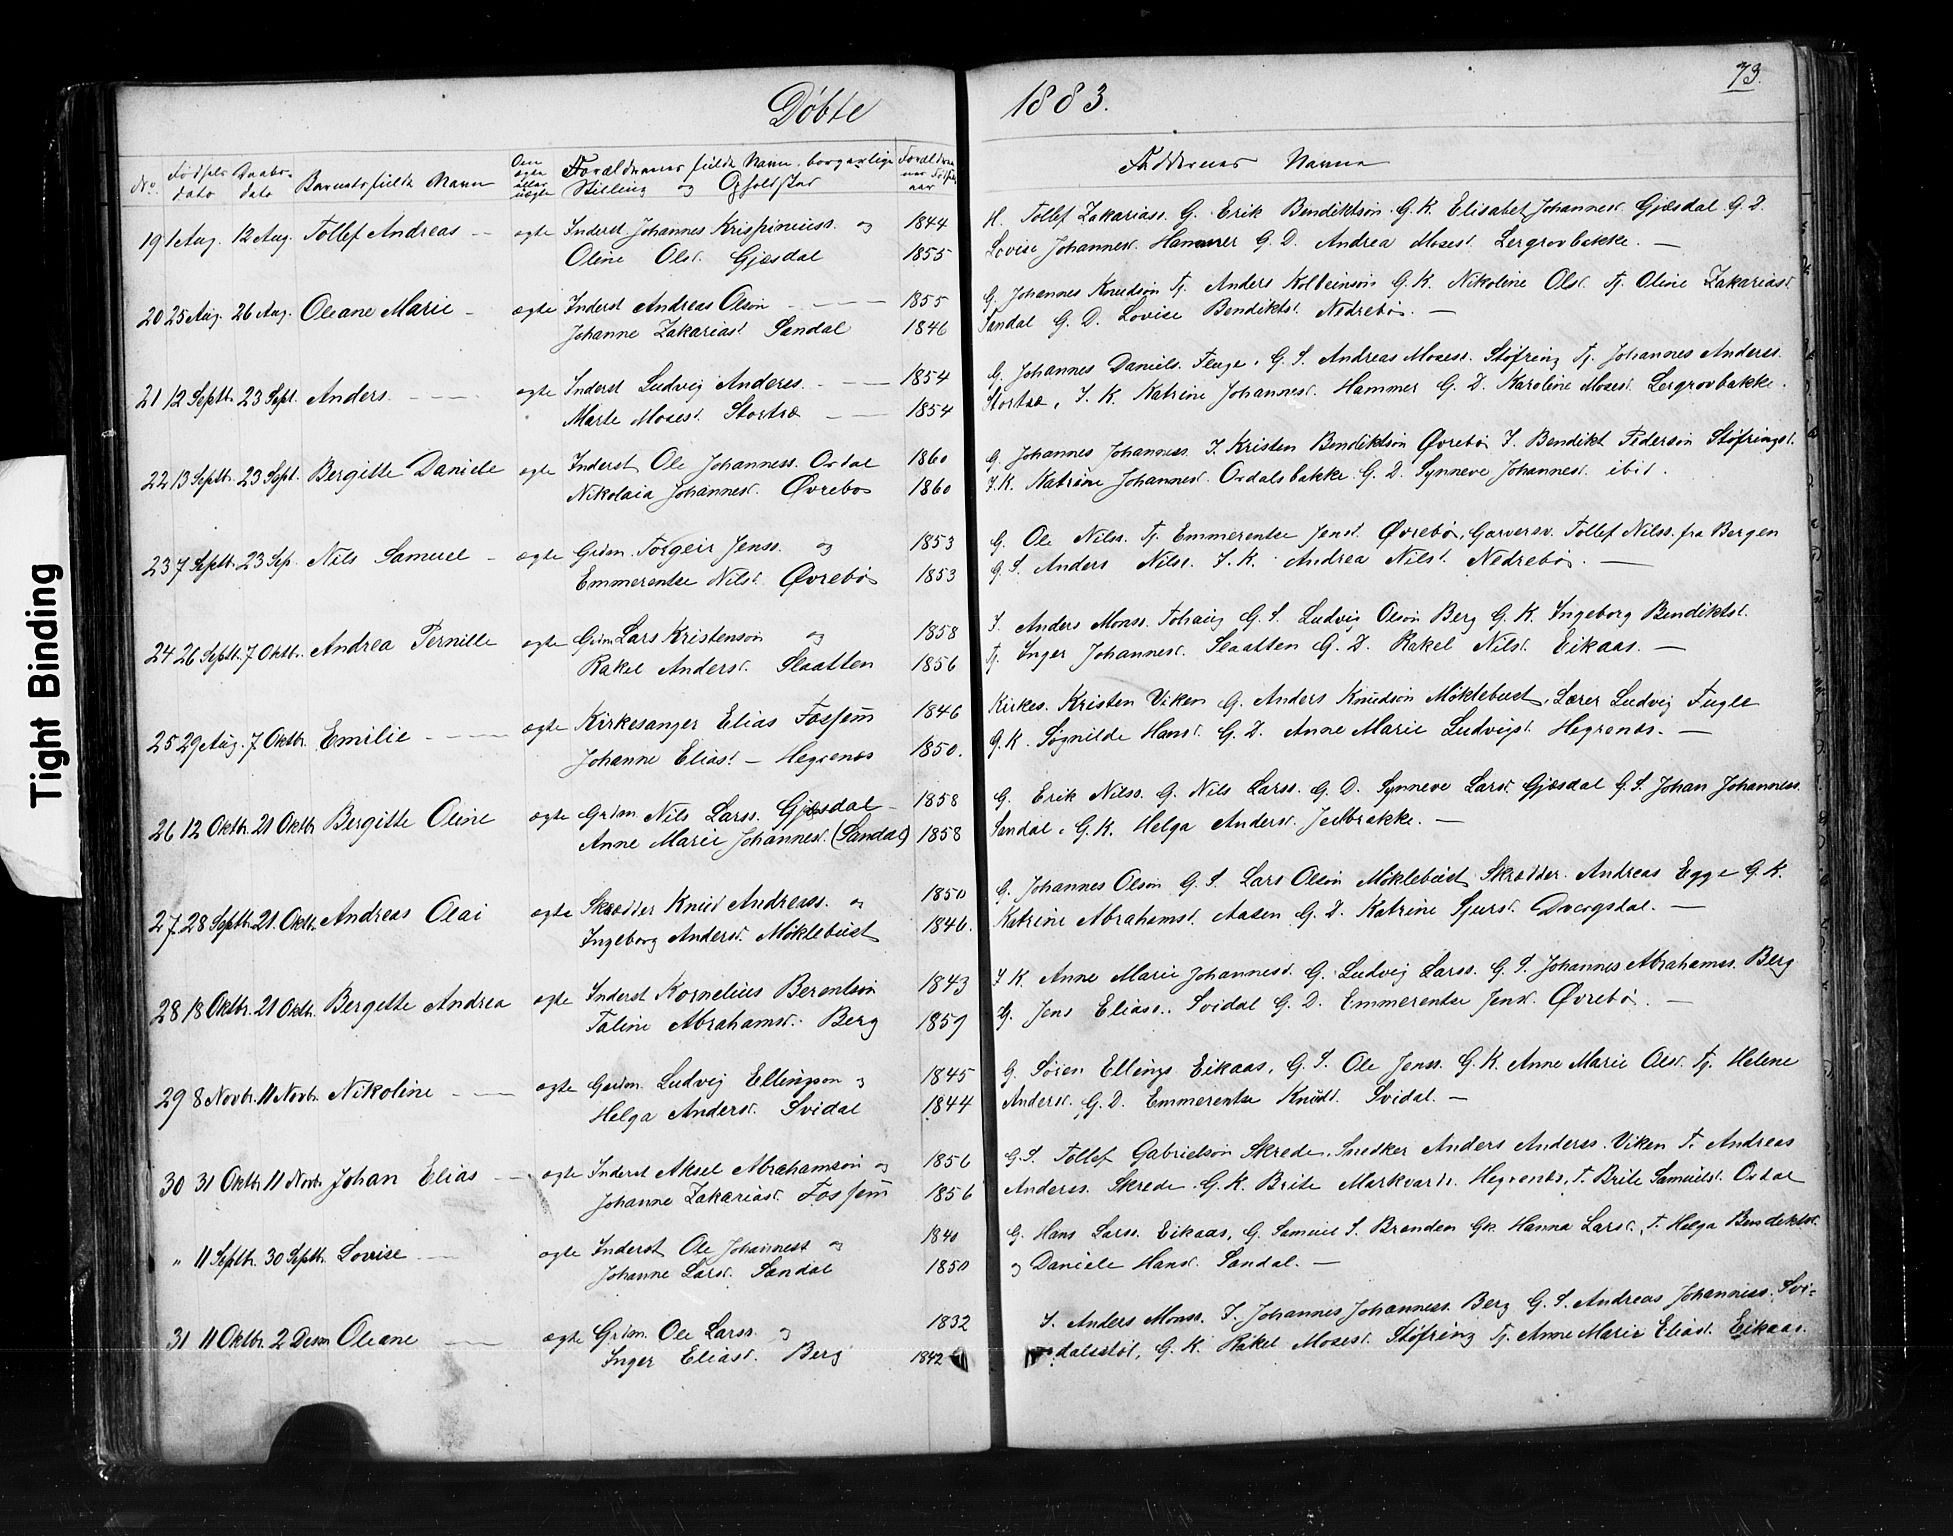 73.
Døbte 1883.
No. Fødsels dato Daabs dato Barnets fulde Navn Om ægte eller uægte Forældrenes fulde Navn, borgerlige Stilling og Opholdsted Forældrenes Fødselsaar Faddernes Navne
19 1 Aug. 12 Aug. Tollef Andreas — ægte Inderst Johannes Krispiniuss. og 1844 H. Tollef Zakariass. G. Erik Bendiktsøn G. K. Elisabet Johannesd. Gjæsdal G. D.
Oline Olsd. Gjæsdal 1855 Lovise Johannesd. Hammer G. D. Andrea Mosesd. Lergrovbakke. —
20 25 Aug. 26 Aug. Oleane Marie — ægte Inderst Andreas Olsøn — — — 1855 G. Johannes Knudsøn Tj. Anders Kolbeinsøn G. K. Nikoline Olsd. Tj. Oline Zakariasd.
Johanne Zakariasd. Sandal 1846 Sandal G. D. Lovise Bendiktsd. Nedrebø. —
21 12 Septb. 23 Sept. Anders — — — ægte Inderst Ludvig Anderss. — — — 1854 G. Johannes Daniels. Fluge, G. S. Andreas Mosess. Støfring Tj. Johannes Anderss.
Marte Mosesd. Stortræ — — 1854 Stortræ, I. K. Katrine Johannesd. Hammer G. D. Karoline Mosesd. Lergrovbakke.
22 13 Septb. 23 Sept. Bergitte Daniele ægte Inderst Ole Johanness. Ordal 1860 G. Johannes Johanness. I. Kristen Bendiktsøn Øvrebø I. Bendikt Pedersøn Støfringsd.
Nikolaia Johannesd. Øvrebø 1860 I. K. Katrine Johannesd. Ordalsbakke G. D. Synneve Johannesd. ibid.
23 7 Septb. 23 Sep. Nils Samuel — ægte Grdm. Torgeir Jenss. og 1853 G. Ole Nilss. Tj. Emmerentse Jensd. Øvrebø, Garversv. Tollef Nilss. fra Bergen
Emmerentse Nilsd. Øvrebø 1853 G. S. Anders Nilss. I. K. Andrea Nilsd. Nedrebø. —
24 26 Septb. 7 Oktbr. Andrea Pernille ægte Grdm. Lars Kristensøn og 1858 I. Anders Monss. Tohaug G. S. Ludvig Olsøn Berg G. K. Ingeborg Bendiktsd.
Rakel Andersd. Slaatten 1856 Tj. Inger Johannesd. Slaatten G. D. Rakel Nilsd. Eikaas. —
25 29 Aug. 7 Oktbr. Emilie — — — ægte Kirkesanger Elias Fossem 1846 Kirkes. Kristen Viken G. Anders Knudsøn Møklebust, Lærer Ludvig Fugle
Johanne Eliasd. — Hegrenæs 1850. G. K. Søgnilde Hansd. G. D. Anne Marie Ludvigsd. Hegrenæs. —
26 12 Oktbr. 21 Oktbr. Bergitte Oline ægte Grdm Nils Larss. Gjæsdal — 1858 G. Erik Nilss. G. Nils Larss. G. D. Synneve Larsd. Gjæsdal G. S. Johan Johanness.
Anne Marie Johannesd. (Sandal) 1858 Sandal, G. K. Helga Andersd. Jedbrakke. —
27 28 Septb. 21. Oktbr. Andreas Olai ægte Skrædder Knud Andreass. og 1850 G. Johannes Olsøn G. S. Lars Olsøn Møklebust Skrædder Andreas Egge G. K.
Ingeborg Andersd. Møklebust 1846. Katrine Abrahamsd. Aasen G. D. Katrine Sjursd. Dvergsdal. —
28 18 Oktbr. 21 Oktbr. Bergitte Andrea ægte Inderst Kornelius Berentsøn 1843 I K. Anne Marie Johannesd. G. Ludvig Larss. G. S. Johannes Abrahamss. Berg
Taline Abrahamsd. Berg 1859 G. Jens Eliass. Svidal G. D. Emmerentse Jensd. Øvrebø. —
29 8 Novbr. 11 Novbr. Nikoline — — ægte Gaardm. Ludvig Ellingsøn og 1845 G. Søren Ellings. Eikaas, G. S. Ole Jenss. G. K. Anne Marie Olsd. Tj. Helene
Helga Andersd. Svidal 1844 Andersd. G. D. Emmerentse Knudsd. Svidal. —
30 31 Oktbr. 11 Novbr. Johan Elias — ægte Inderst Aksel Abrahamsøn og 1856 G. S. Tollef Gabrielsøn Skrede, Snedker Anders Anderss. Viken T. Andreas
Johanne Zakariasd. Fossem 1856 Anderss. Skrede. G. K. Brite Markvards. Hegrenæs, T. Brite Samuelsd. Ordal
" 11 Septb. 30 Septb. Lovise — — ægte Inderst Ole Johanness. og 1840 G. Hans Larss. Eikaas, G. Samuel S. Brenden Gk. Hanna Larsd., T. Helga Bendiktsd.
Johanne Larsd. Sandal 1850 og Daniele Hansd. Sandal. —
31 11 Oktbr. 2 Desm Oleane — ægte Grdm. Ole Larss. og 1832 I. Anders Monss. I. Johannes Johanness. Berg G. S. Andreas Johanness. Svi-
Inger Eliasd. Berg 1842 dalsstøl, G. K. Rakel Mosesd. Støfring Tj. Anne Marie Eliasd. Eikaas.
Tight Binding